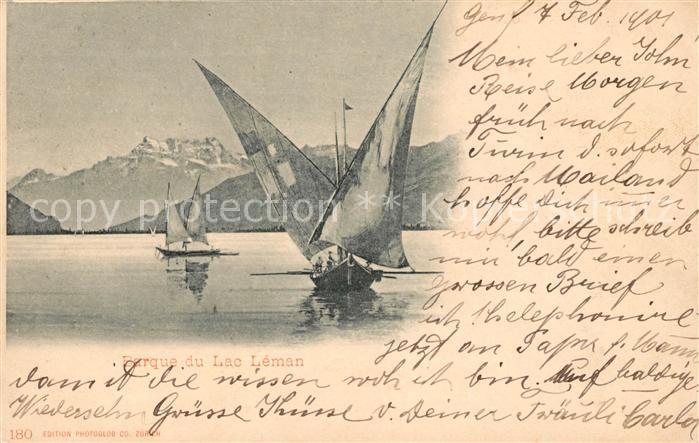 Genf 7 Feb. 1901
Mein lieber John
Reise Morgen
früh nach
Turin d. sofort
nach Mailand
hoffe Dich immer
wohl bitte schreib
mir bald einen
grossen Brief
ich thelephonire
jetzt an Papa &
damit die wissen wo ich bin. Auf baldige
Wiedersehn Grüsse Küsse v. Deiner
Barque du Lac Léman
180 EDITION PHOTOGLOB CO. ZÜRICH
copy protection ** Kopierschutz